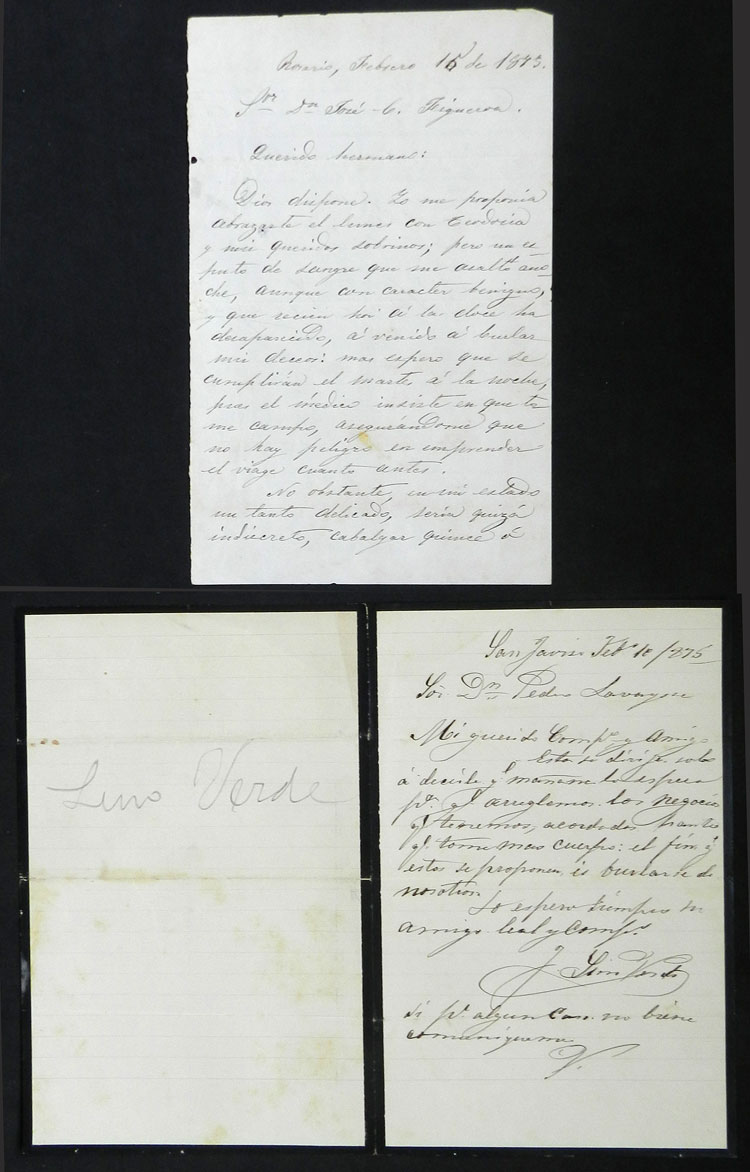 Rosario, Febrero 15 de 1873.
Sor Dn José C. Figueroa.
Querido hermano:
Dios dispone. Yo me proponía
abrazarte el lunes con Teodocia
y mis queridos sobrinos; pero un es-
puto de sangre que me asaltó ano-
che, aunque con caracter benigno,
y que recien hoi á la doce ha
desaparecido, á venido á burlar
mis deceos: mas espero que se
cumplirán el martes á la noche,
pues el médico insiste en que to
me campo, asegurándome que
no hay peligro en emprender
el viage cuanto antes.
No obstante, en mi estado
un tanto delicado, sería quizá
indiscreto, cabalgar quince ó
Lino Verde
San Javier Feb 10/875
Sor. Dn Pedro Lavaysse
Mi querido Compe y Amigo
Esta se dirije solo
á decirle ql mañana lo espero
pa ql arreglemos los negocios
ql tenemos, acordados
ql tome mas cuerpo: el fin ql
estos se proponen is burlarse de
nosotros
Lo espero siempre su
amigo leal y Compe
J. Lino Verde
si pr algun caso no biene
comuniqueme
V.